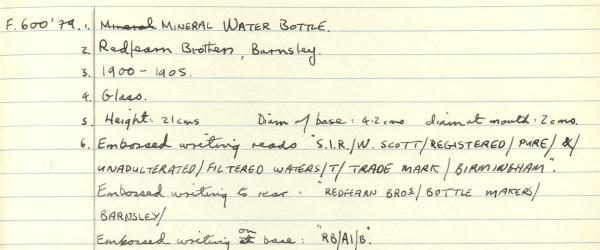 F.600'79. 1. Mineral MINERAL WATER BOTTLE.
2. Redfearn Brothers, Barnsley.
3. 1900 - 1905.
4. Glass.
5. Height: 21cms Diam of base: 4.2cms diam at mouth: 2cms.
6. Embossed writing reads "S.I.R./W. SCOTT/REGISTERED/PURE/&/
UNADULTERATED/FILTERED WATERS/T/TRADE MARK/BIRMINGHAM".
Embossed writing to rear: "REDFEARN BROS/BOTTLE MAKERS/
BARNSLEY/
Embossed writing on base: "RB/A1/B".